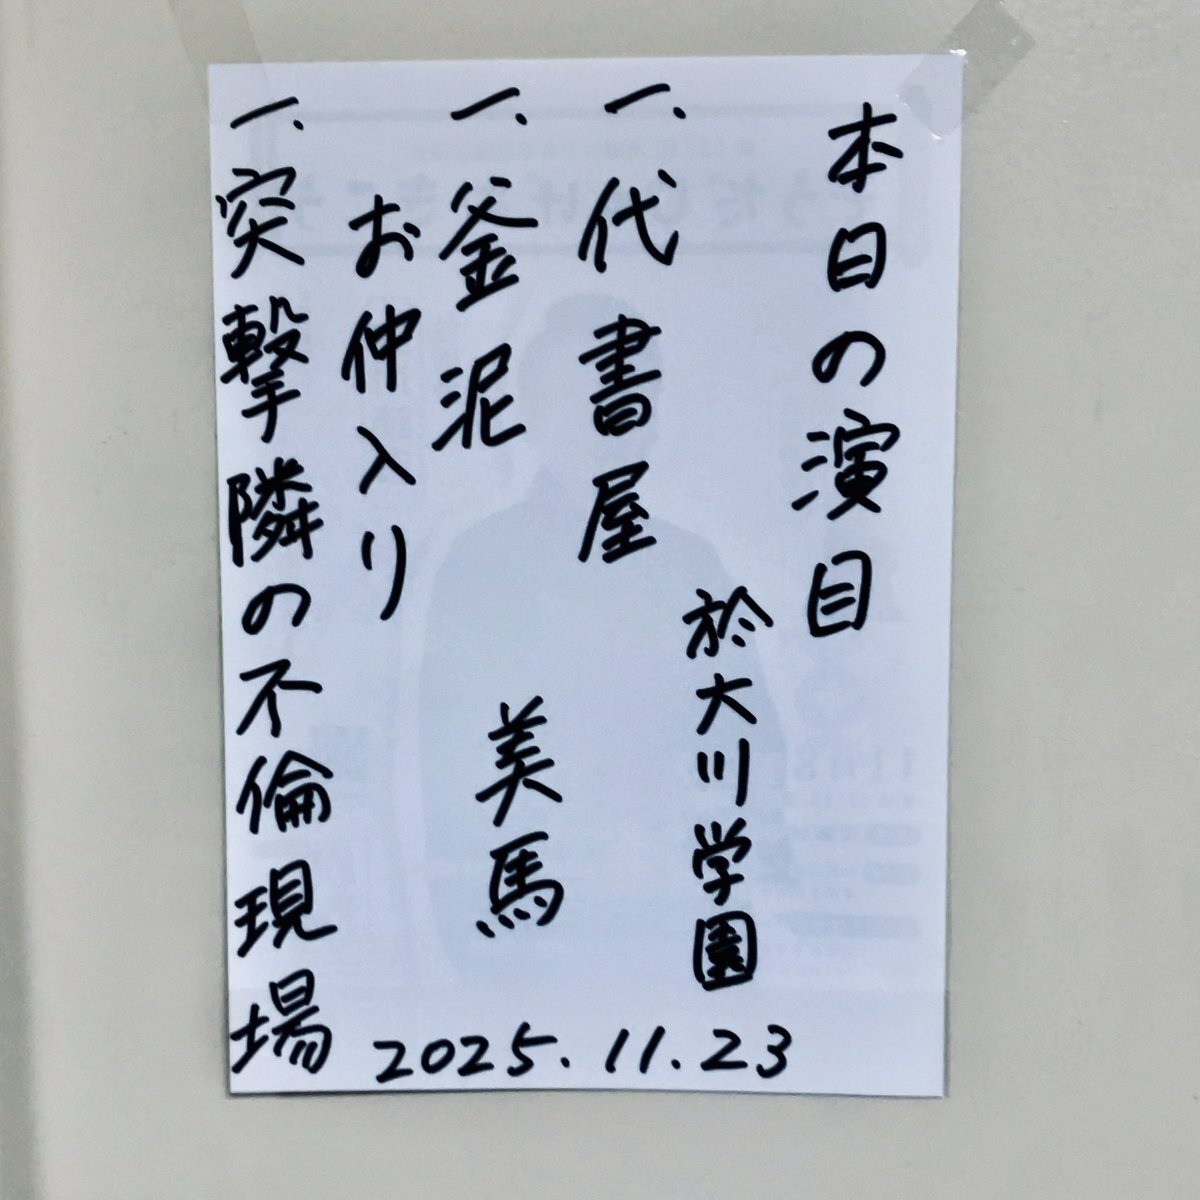 本日の演目
於大川学園
一、代書屋
一、釜泥 美馬
お仲入り
一、突撃隣の不倫現場
2025.11.23